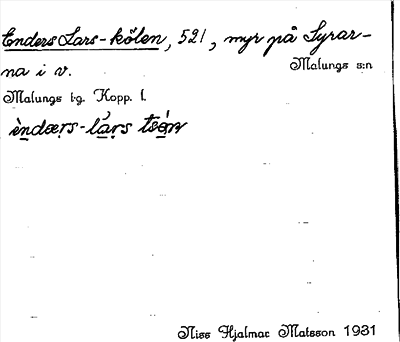 Enders Lars-kölen, 521, myr på Lyrar-
na i v.
Malungs s:n
Malungs t:g. Kopp. l.
èndærs-lárs tsó̱n
Niss Hjalmar Matsson 1931